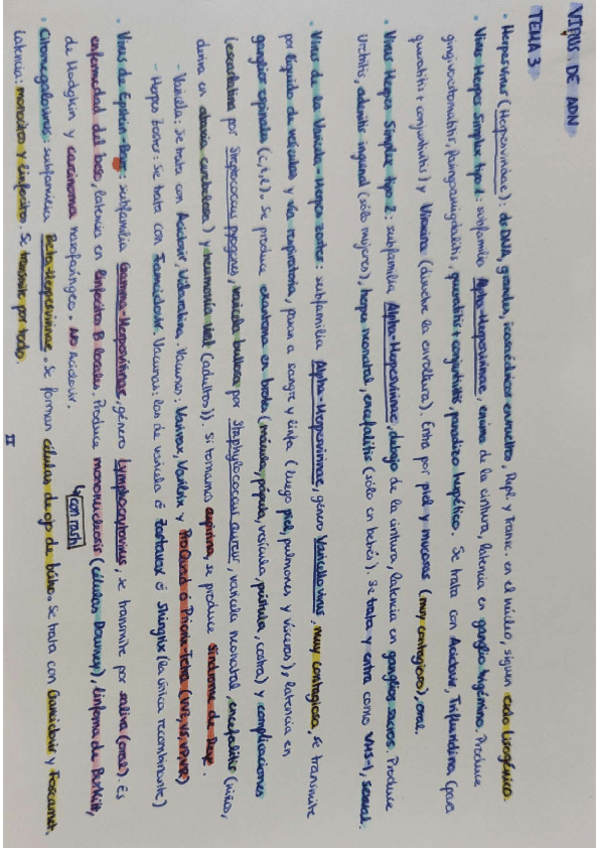 VIRUS DE ADN
TEMA 3
· Herpesvirus (Herpesviridae): dsDNA, grandes, icosaédricos envueltos, Repl y transc. en el núcleo, siguen ciclo lisogénico.
· Virus Herpes Simplex tipo 1: subfamilia Alpha-Herpesvirinae, encima de la cintura, latencia en ganglio trigémino. Produce
gingivoestomatitis, faringoamigdalitis, queratitis y conjuntivitis, panadizo herpético. Se trata con Aciclovir, Trifluridina (para
queratitis y conjuntivitis) y Viroxina (disuelve la envoltura). Entra por piel y mucosas (muy contagioso), oral.
· Virus Herpes Simplex tipo 2: subfamilia Alpha-Herpesvirinae, debajo de la cintura, latencia en ganglios sacros. Produce
Uretritis, adenitis inguinal (sólo mujeres), herpes neonatal, encefalitis (sólo en bebés). Se trata y entra como VHS-1, sexual.
· Virus de la Varicela-Herpes zoster: subfamilia Alpha-Herpesvirinae, género Varicellovirus, muy contagiosa, se transmite
por líquido de vesículas y vía respiratoria, pasan a sangre y linfa (luego piel, pulmones y vísceras), latencia en
ganglios espinales (c,t,l). Se produce exantema en brotes (mácula, pápula, vesícula, pústula, costra) y complicaciones
(escarlatina por Streptococcus pyogenes, varicela bullosa por Staphylococcus aureus, varicela neonatal, encefalitis (niños,
deriva en ataxia cerebelosa) y neumonía viral (adultos)). Si tomamos aspirina, se produce Síndrome de Reye.
- Varicela: se trata con Aciclovir, Vidarabina. Vacunas: Varivax, Varilrix y ProQuad o Priorix-Tetra (VVZ, VS, VP, VR)
- Herpes Zoster: Se trata con Famciclovir. Vacunas: las de varicela ó Zostavax ó Shingrix (la única recombinante)
· Virus de Epstein-Barr: subfamilia Gamma-Herpesvirinae, género Lymphocryptovirus, se transmite por saliva (oral). Es
enfermedad del beso, latencia en linfocitos B locales. Produce mononucleosis (células Downey), linfoma de Burkitt,
de Hodgkin y carcinoma nasofaríngeo. NO Aciclovir. ↳ con rash
· Citomegalovirus: subfamilia Beta-Herpesvirinae. Se forman células de ojo de búho. Se trata con Ganciclovir y Foscarnet.
Latencia: monocitos y linfocitos. Se transmite por todo.
II